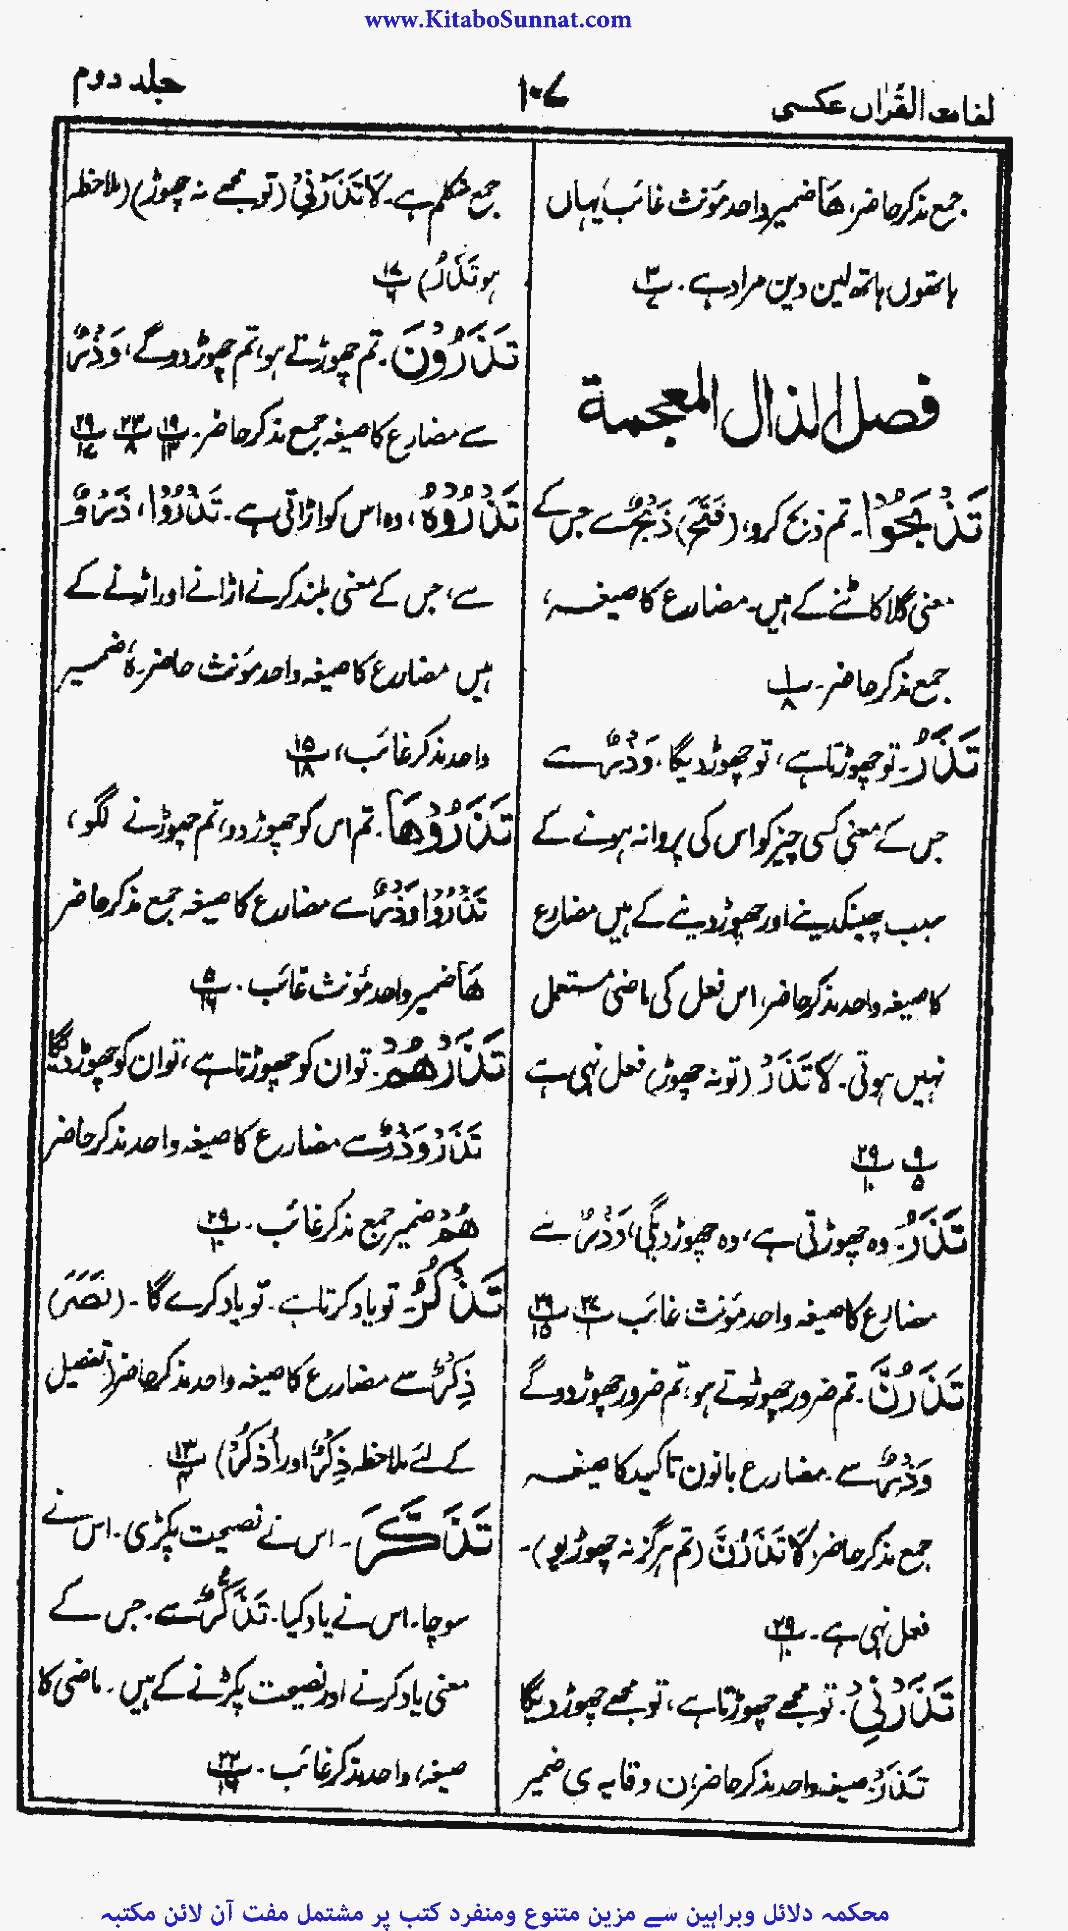 www.KitaboSunnat.com
لغات القرآن عکسی
۱۰۷
جلد دوم
جمع مذکر حاضر، ھَا ضمیر واحد مؤنث غائب یہاں
ہاتھوں ہاتھ لین دین مراد ہے۔ ۳/۷
فصل الذال المعجمۃ
تَذْبَحُوْا۔ تم ذبح کرو، (فَتَحَ) ذَبْحٌ سے جس کے
معنی گلا کاٹنے کے ہیں۔ مضارع کا صیغہ،
جمع مذکر حاضر۔ ۱/۸
تَذَرُ۔ تو چھوڑتا ہے، تو چھوڑ دیگا، وَذْرٌ سے
جس کے معنی کسی چیز کو اس کی پروا نہ ہونے کے
سبب پھینکدینے اور چھوڑ دینے کے ہیں مضارع
کا صیغہ واحد مذکر حاضر، اس فعل کی ماضی مستعمل
نہیں ہوتی۔ لَا تَذَرْ (تو نہ چھوڑ) فعل نہی ہے
۹/۵ ۲۹/۱۰
تَذَرُ۔ وہ چھوڑتی ہے، وہ چھوڑ دیگی، وَذْرٌ سے
مضارع کا صیغہ واحد مؤنث غائب ۲۷/۱ ۲۹/۱۵
تَذَرُنَّ۔ تم ضرور چھوڑتے ہو، تم ضرور چھوڑ دوگے
وَذْرٌ سے۔ مضارع بانون تاکید کا صیغہ
جمع مذکر حاضر، لَا تَذَرُنَّ (تم ہرگز نہ چھوڑیو)۔
فعل نہی ہے۔ ۲۹/۱۰
تَذَرْنِیْ۔ تو مجھے چھوڑتا ہے، تو مجھے چھوڑ دیگا
تَذَرْ صیغہ واحد مذکر حاضر، ن وقایہ ی ضمیر
جمع متکلم ہے۔ لَا تَذَرْنِیْ (تو مجھے نہ چھوڑ) (ملاحظہ
ہو تَذَرُ) ۱۷/۶
تَذَرُوْنَ۔ تم چھوڑتے ہو، تم چھوڑ دوگے، وَذْرٌ
سے مضارع کا صیغہ جمع مذکر حاضر۔ ۱۹/۱۳ ۲۳/۸ ۲۹/۱۷
تَذْرُوْہُ، وہ اس کو اڑاتی ہے۔ تَذْرُوْا، ذَرْوٌ
سے، جس کے معنی بلند کرنے اڑانے اور اڑنے کے
ہیں مضارع کا صیغہ واحد مؤنث حاضر۔ ہٗ ضمیر
واحد مذکر غائب، ۱۵/۱۸
تَذَرُوْھَا۔ تم اس کو چھوڑ دو، تم چھوڑنے لگو،
تَذَرُوْا وَذْرٌ سے مضارع کا صیغہ جمع مذکر حاضر
ھَا ضمیر واحد مؤنث غائب۔ ۵/۱۶
تَذَرْھُمْ۔ تو ان کو چھوڑتا ہے، تو ان کو چھوڑ دیگا
تَذَرْ وَذْرٌ سے مضارع کا صیغہ واحد مذکر حاضر
ھُمْ ضمیر جمع مذکر غائب۔ ۲۹/۱۰
تَذْکُرُ۔ تو یاد کرتا ہے۔ تو یاد کرے گا۔ (نَصَرَ)
ذِکْرٌ سے مضارع کا صیغہ واحد مذکر حاضر (تفصیل
کے لئے ملاحظہ ذِکْرٌ اور اُذْکُرْ) ۱۳/۴
تَذَکَّرَ۔ اس نے نصیحت پکڑی۔ اس نے
سوچا۔ اس نے یاد کیا۔ تَذَکُّرٌ سے۔ جس کے
معنی یاد کرنے اور نصیحت پکڑنے کے ہیں۔ ماضی کا
صیغہ، واحد مذکر غائب۔ ۲۲/۱۶
محکمہ دلائل وبراہین سے مزین متنوع ومنفرد کتب پر مشتمل مفت آن لائن مکتبہ